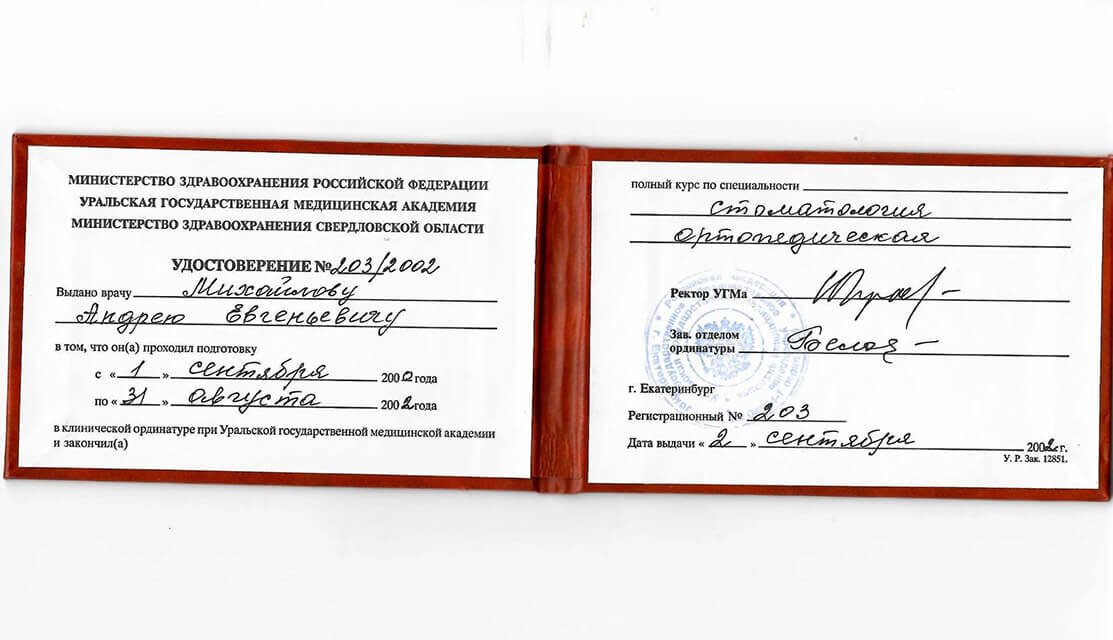 МИНИСТЕРСТВО ЗДРАВООХРАНЕНИЯ РОССИЙСКОЙ ФЕДЕРАЦИИ
УРАЛЬСКАЯ ГОСУДАРСТВЕННАЯ МЕДИЦИНСКАЯ АКАДЕМИЯ
МИНИСТЕРСТВО ЗДРАВООХРАНЕНИЯ СВЕРДЛОВСКОЙ ОБЛАСТИ
УДОСТОВЕРЕНИЕ № 203/2002
Выдано врачу Михайлову
Андрею Евгеньевичу
в том, что он(а) проходил подготовку
с «1» сентября года
по «31» августа 2002 года
в клинической ординатуре при Уральской государственной медицинской академии
и закончил(а)
полный курс по специальности
стоматология
ортопедическая
Ректор УГМа
Зав. отделом
ординатуры
г. Екатеринбург
Регистрационный № 203
Дата выдачи «2» сентября 2002 г.
У. Р. Зак. 12851.